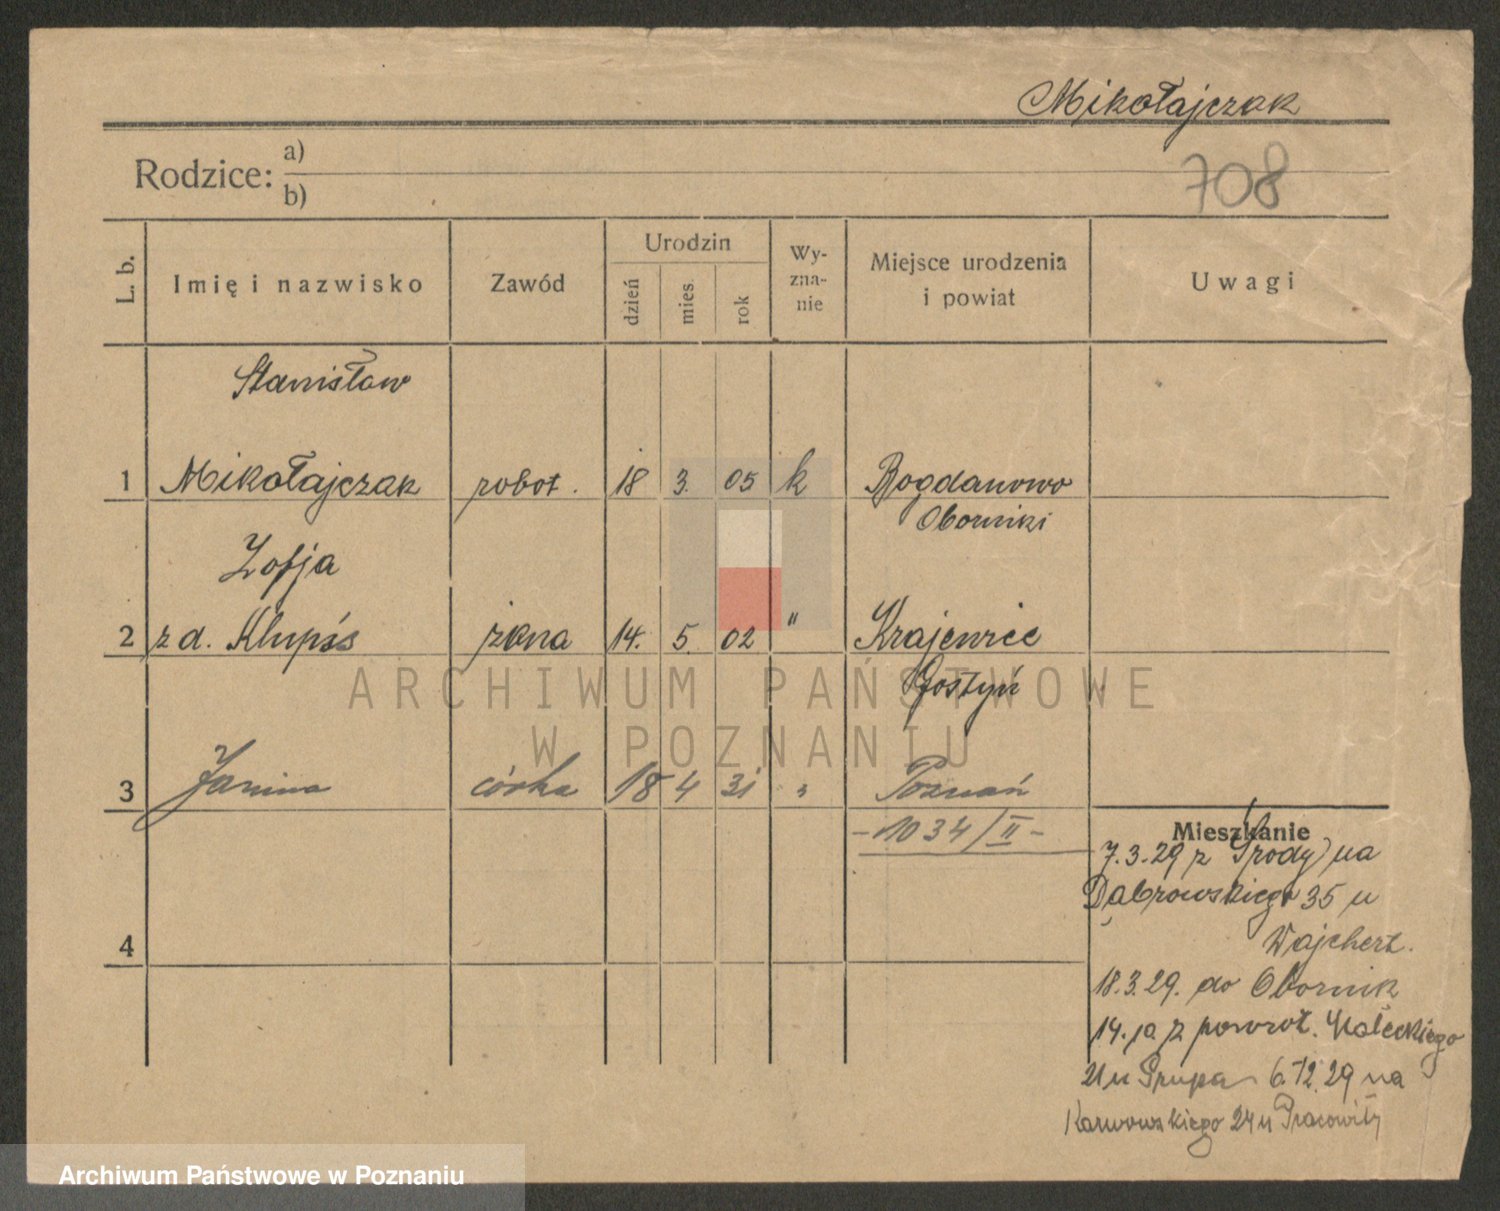 Mikołajczak
708
Rodzice: a)
b)
L. b. Imię i nazwisko Zawód Urodzin dzień mies. rok Wy-zna-nie Miejsce urodzenia i powiat Uwagi
Stanisław
1 Mikołajczak robot. 18 3. 05 k Bogdanowo
Oborniki
Zofja
2 z d. Klupś żona 14. 5. 02 " Krajewice
Gostyń
3 Janina córka 18 4 31 " Poznań
- 1034/II -
Mieszkanie
7.3.29 z Środy na
Dąbrowskiego 35 u
Wajchert.
18.3.29. do Obornik
14. 10 z powrot. Małeckiego
21 u 6.12.29 na
Karwowskiego 24 u Pracowity
4
ARCHIWUM PAŃSTWOWE
W POZNANIU
Archiwum Państwowe w Poznaniu